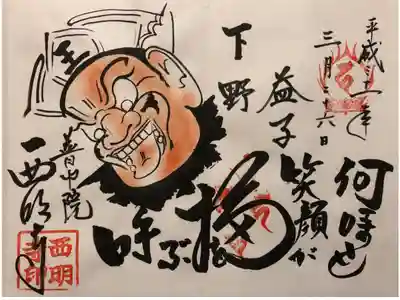 平成三十一年
三月二十六日
何時も
笑顔が
福を
呼ぶ
下野
益子
王
普門院
西明寺
西明
寺印